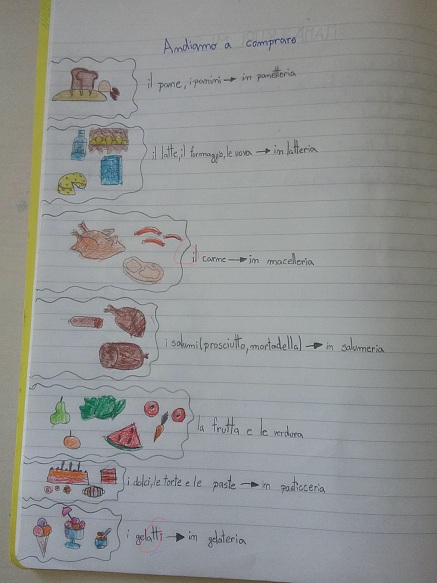 Andiamo a comprare
il pane, i panini → in panetteria
il latte, il formaggio, le uova → in latteria
il carne → in macelleria
i salumi (prosciutto, mortadella) → in salumeria
la frutta e le verdura
i dolci, le torte e le paste → in pasticceria
i gelatti → in gelateria